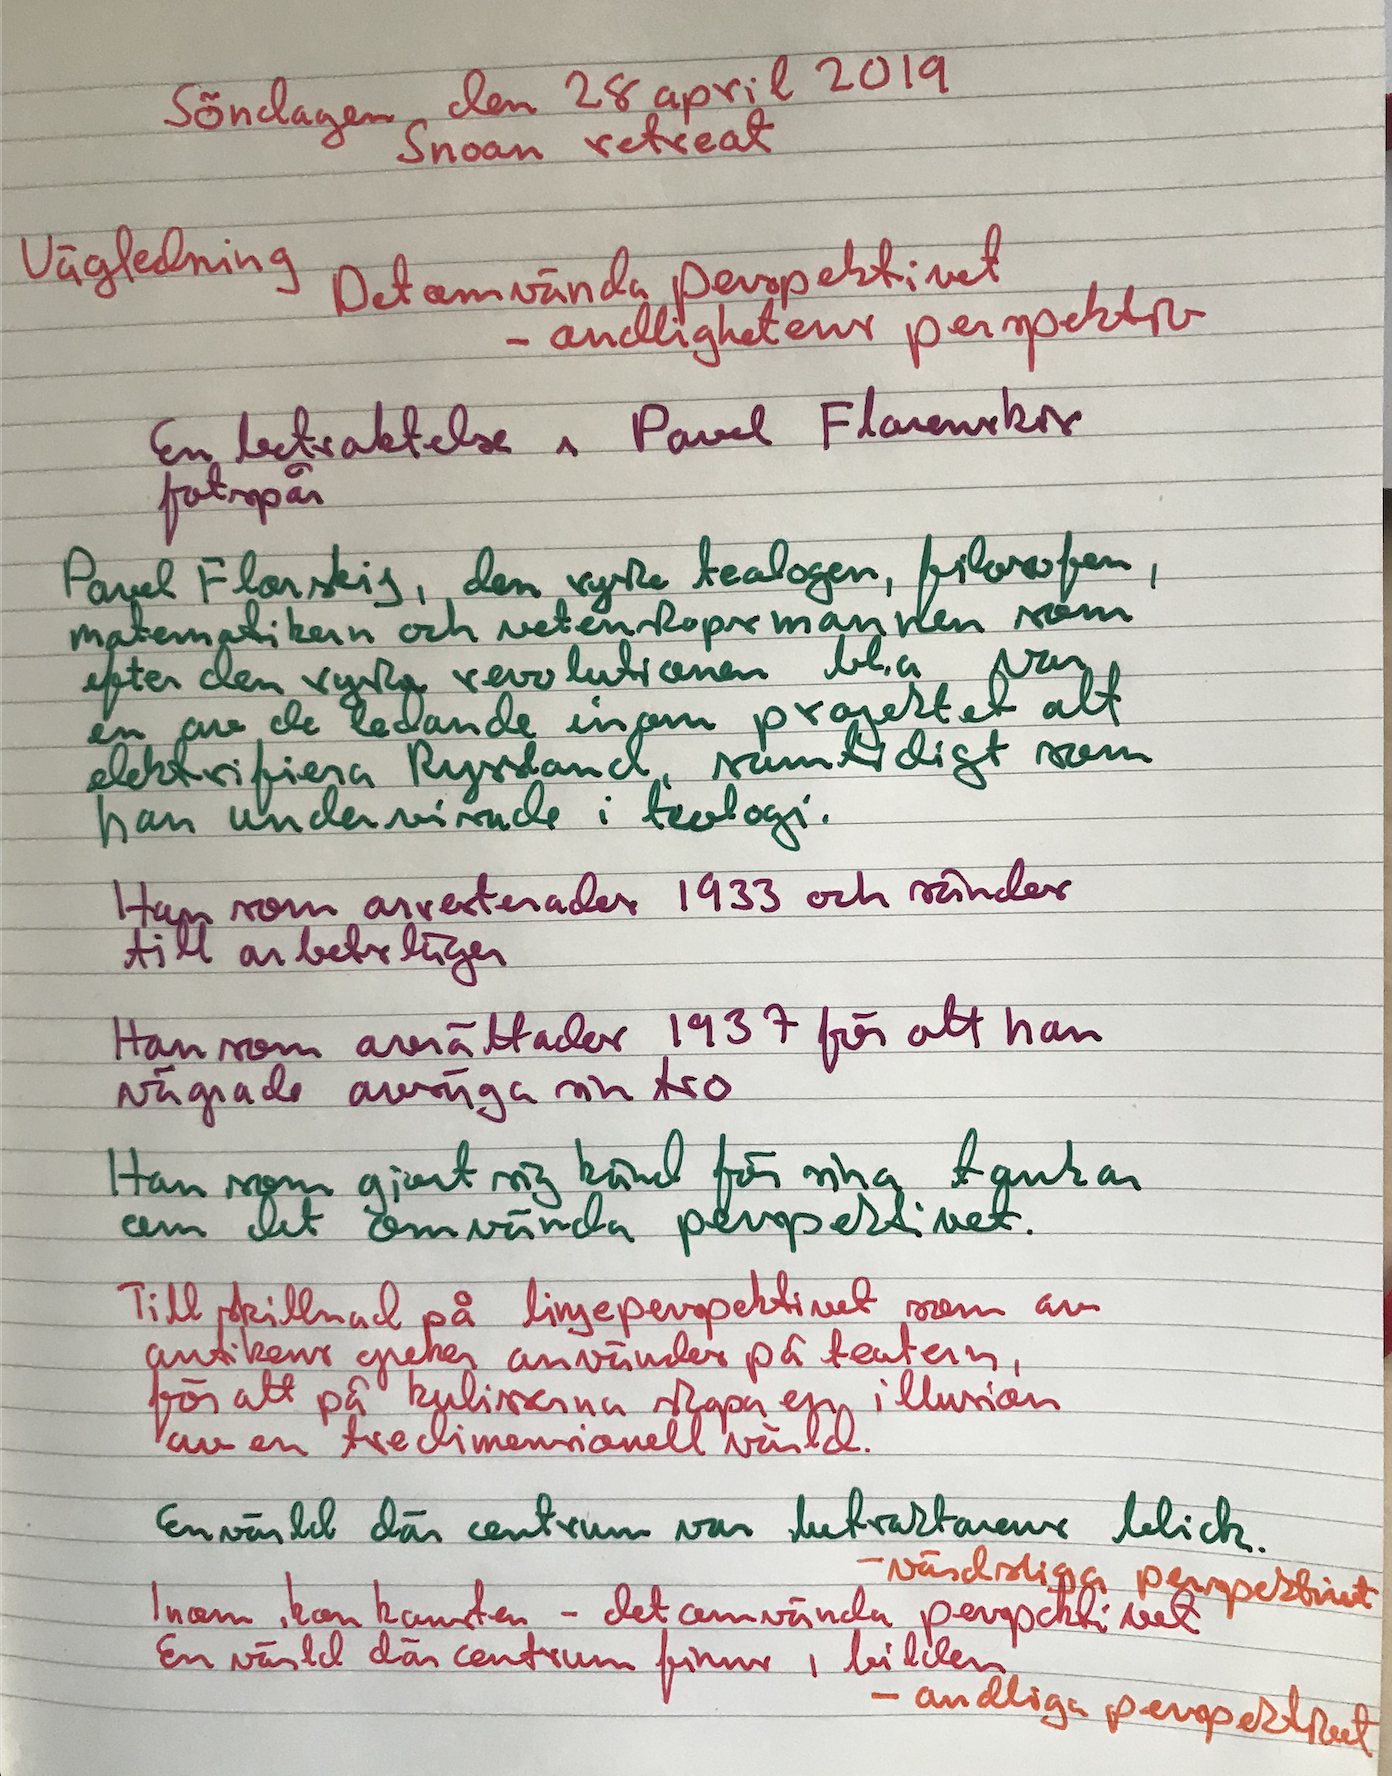 Söndagen den 28 april 2019
Snoan retreat
Vägledning
Det omvända perspektivet
- andlighetens perspektiv
En betraktelse i Pavel Florenskis
fotspår
Pavel Florskij, den ryske teologen, filosofen,
matematikern och vetenskapsmannen som
efter den ryska revolutionen bl.a var
en av de ledande inom projektet att
elektrifiera Ryssland, samtidigt som
han undervisade i teologi.
Han som arresterades 1933 och sändes
till arbetsläger
Han som avrättades 1937 för att han
vägrade avsäga sin tro
Han som gjort sig känd för sina tankar
om det omvända perspektivet.
Till skillnad på linjeperspektivet som av
antikens greker användes på teatern,
för att på kulisserna skapa en illusion
av en tredimensionell värld.
En värld där centrum var betraktarens blick.
- världsliga perspektivet
Inom ikonkonsten - det omvända perspektivet
En värld där centrum finns i bilden
- andliga perspektivet